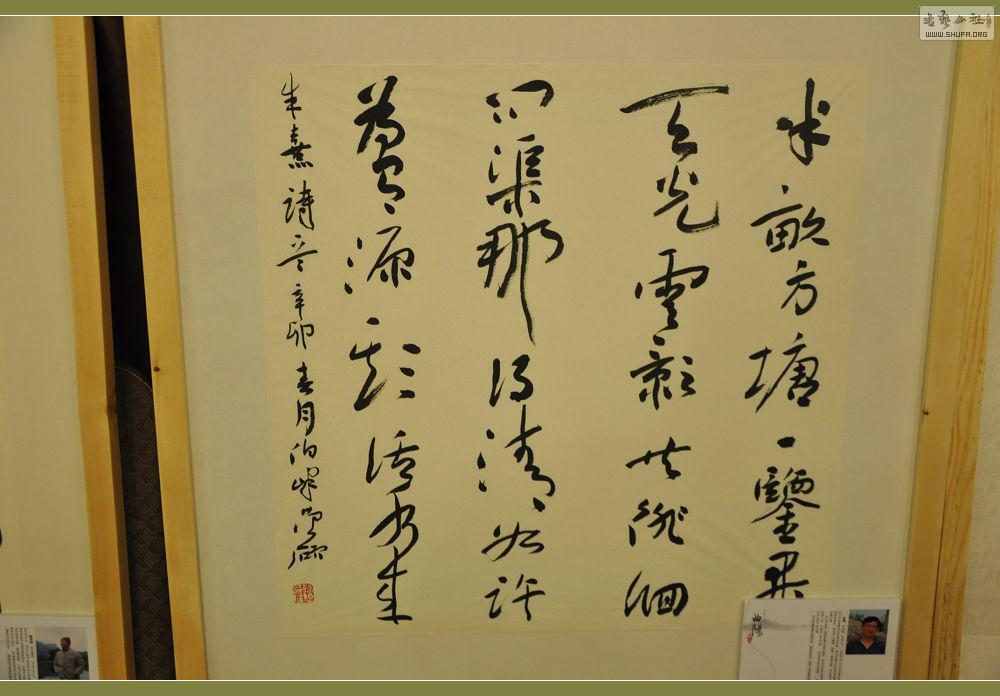 半畝方塘一鑒開
天光雲影共徘徊
问渠那得清如許
為有源頭活水来
朱熹詩 辛卯春月
書藝公社
WWW.SHUFA.ORG